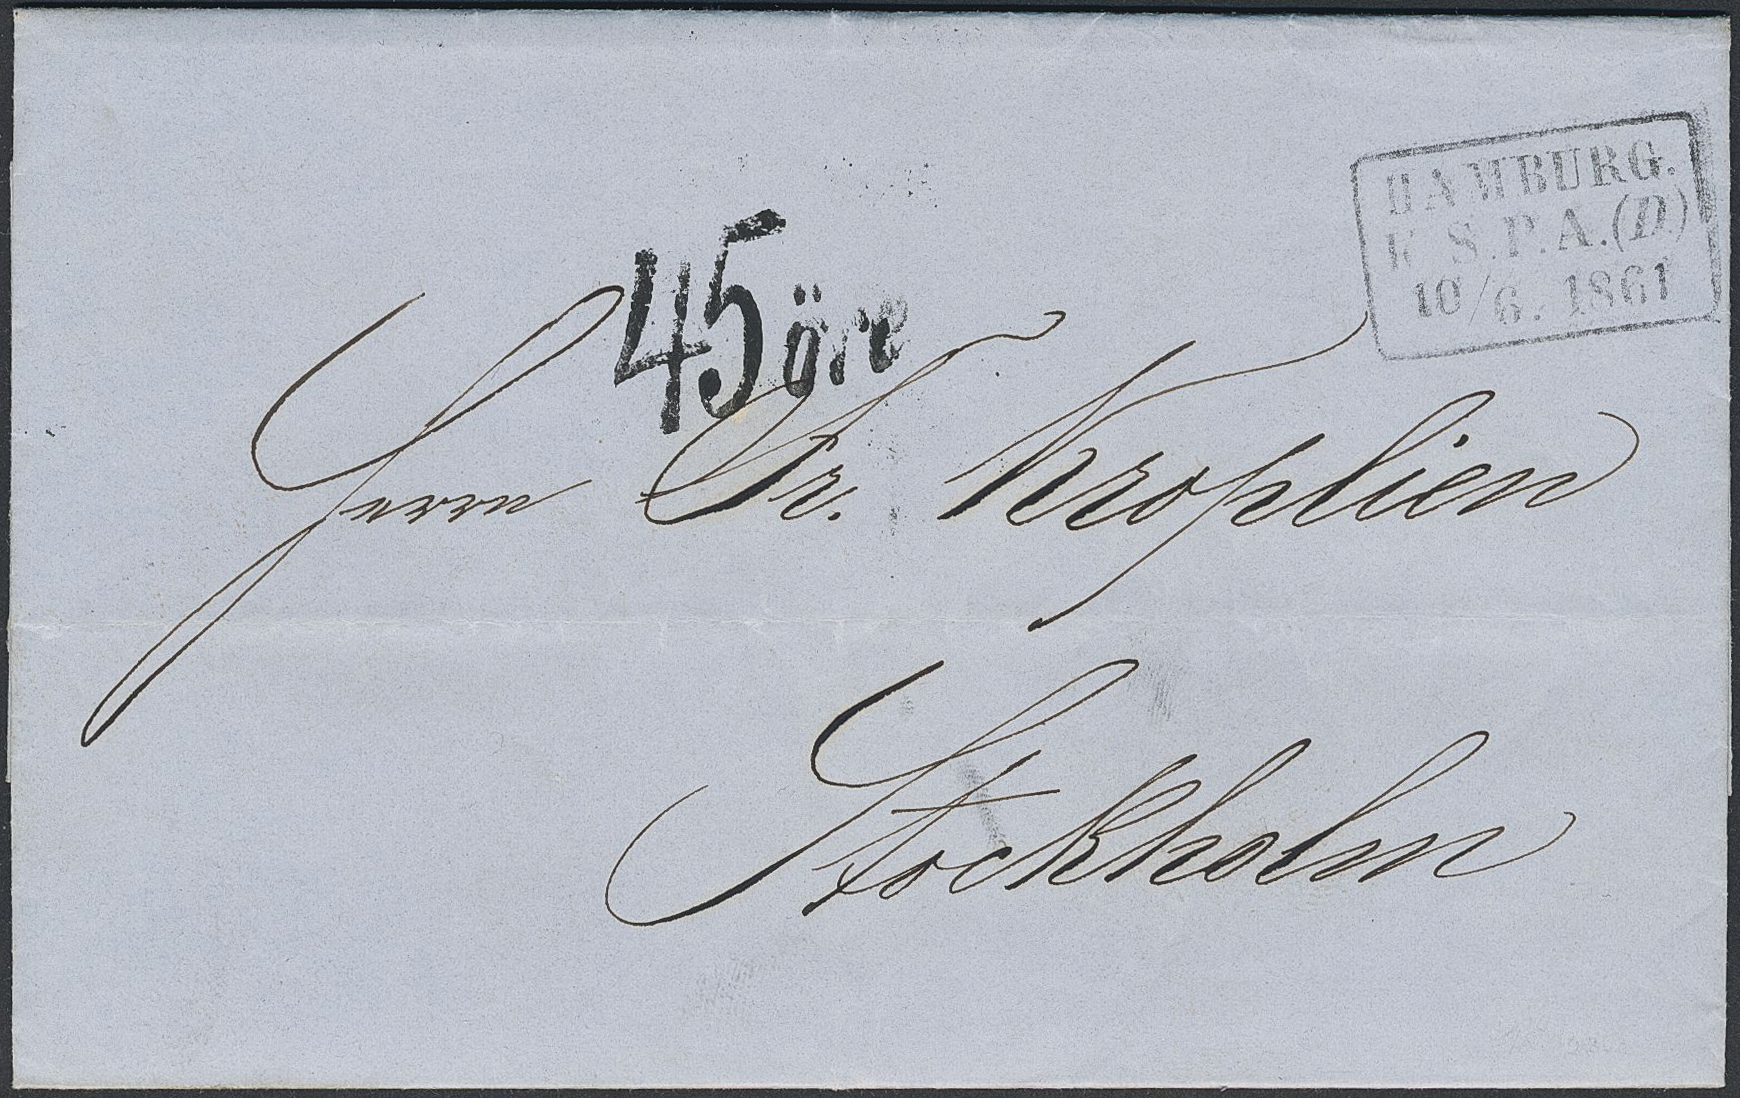 HAMBURG.
K S.P.A.(D.)
10/6. 1861
45 öre
Herrn Fr. Kroplien
Stockholm